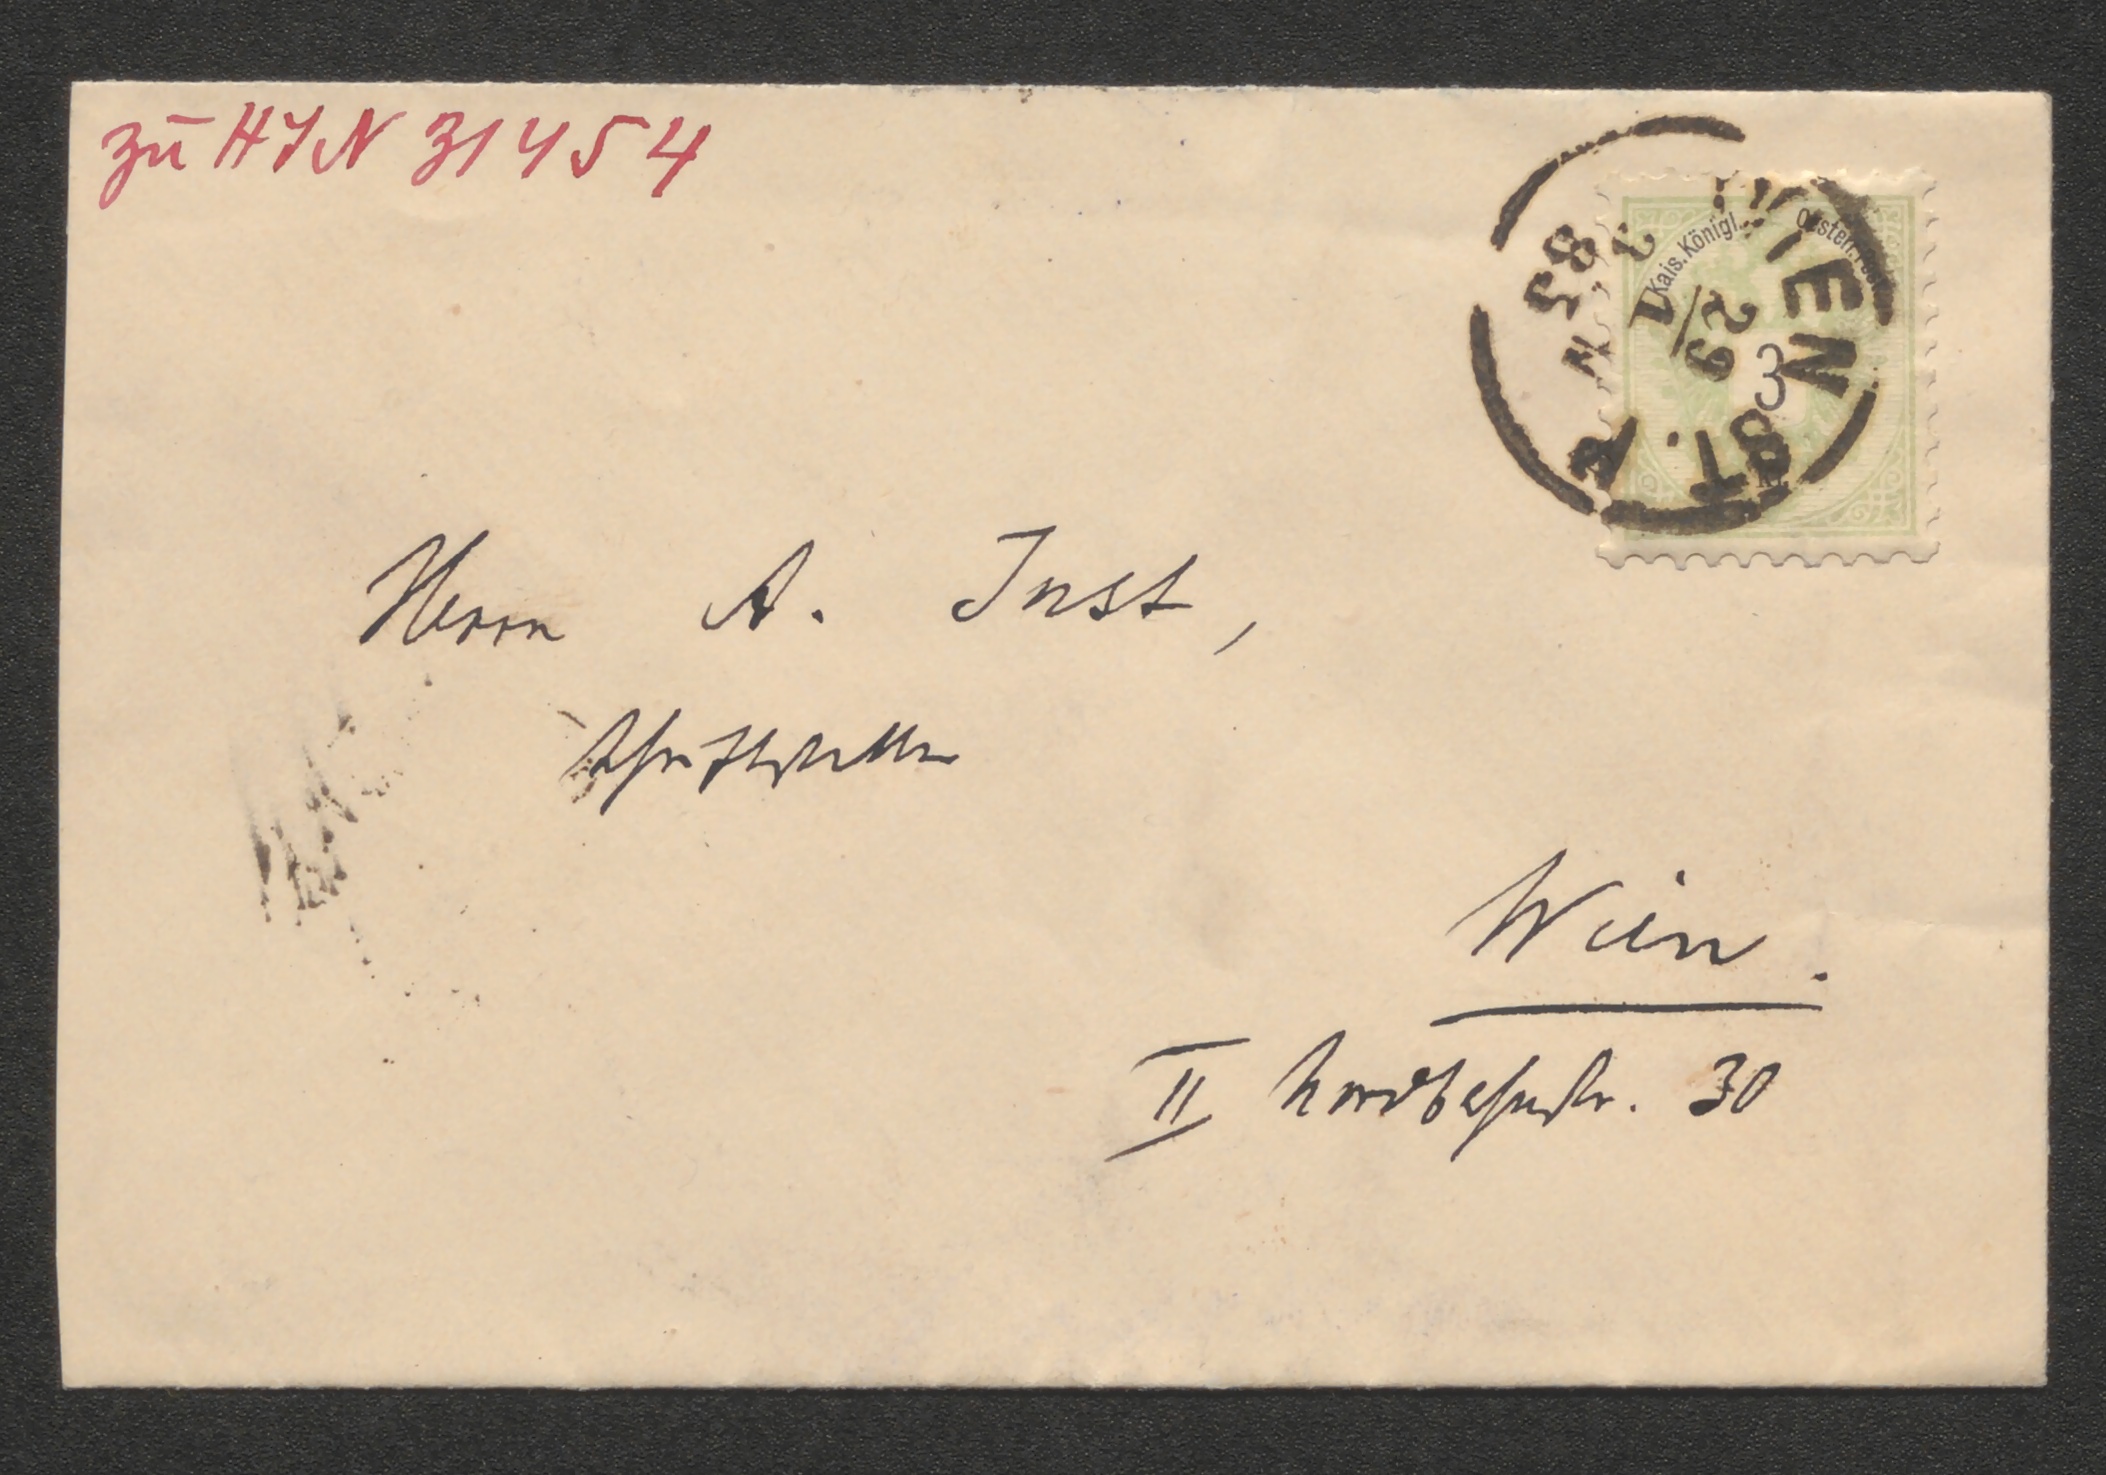 zu HIN 31454
Kais. Königl. Oesterr. Post
3
WIEN
29
V
85
Herrn A. Just,
Schriftsteller
Wien.
II Nordbahnstr. 30